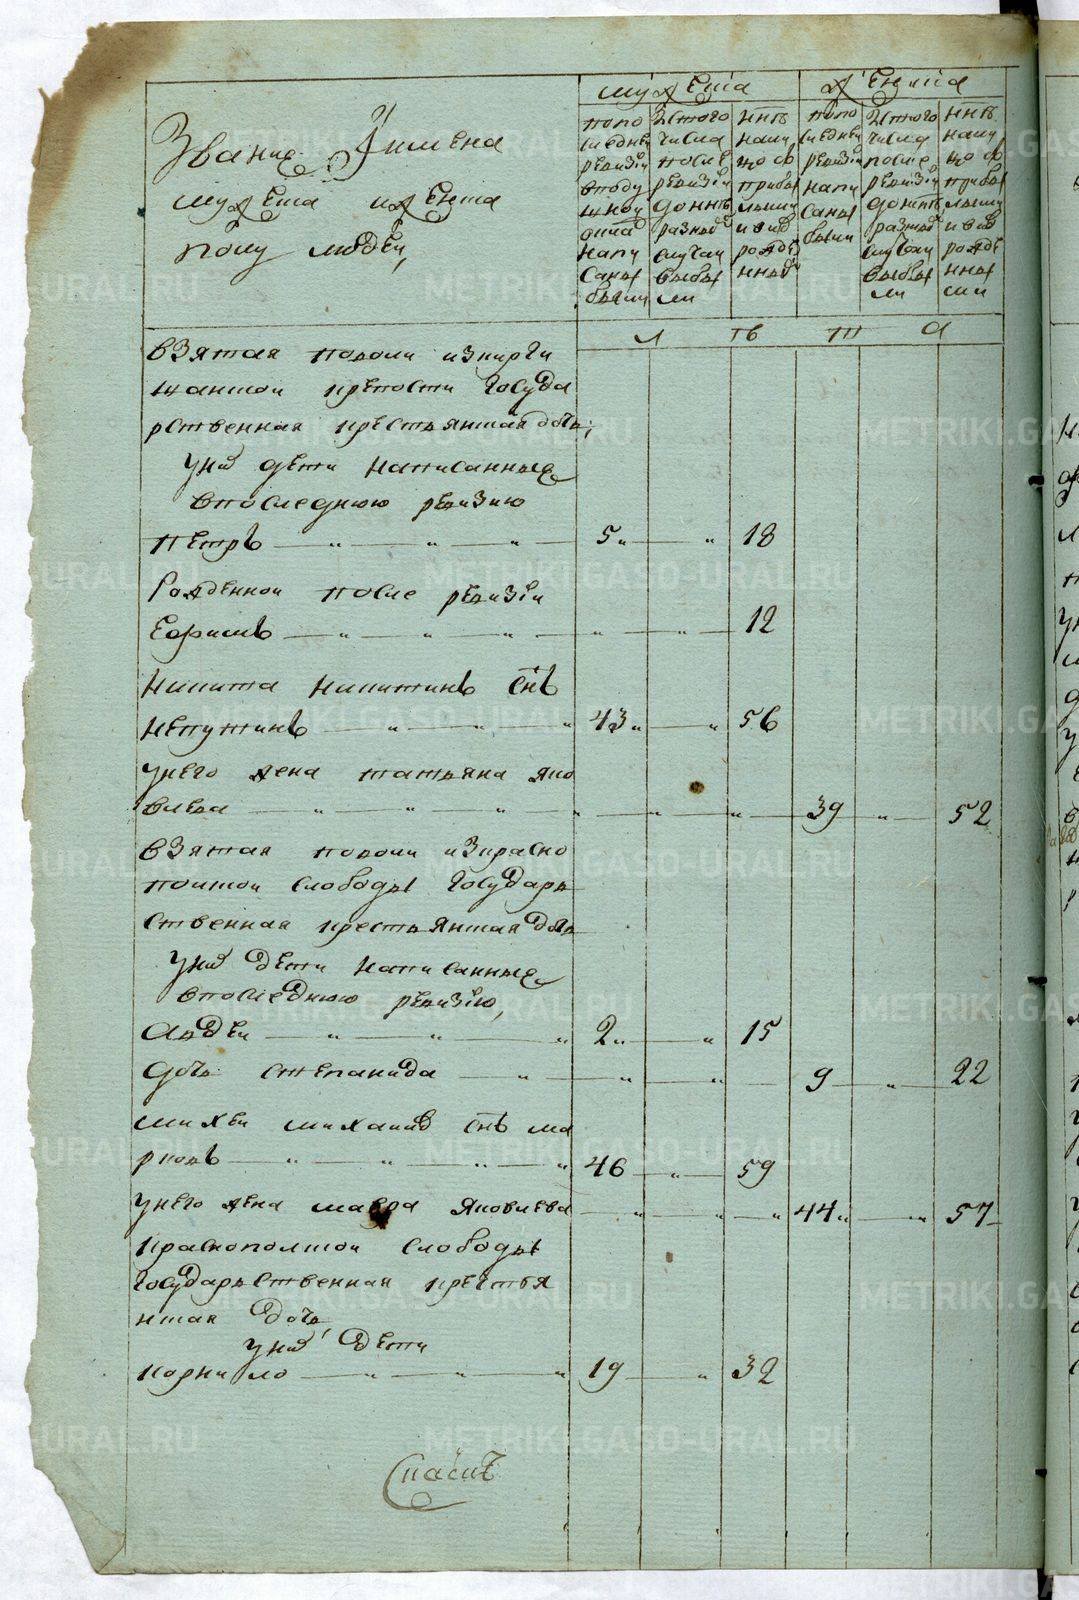 Звание Jимена
мужеска иженска
полу людей,
мужеска
женска
попо
следней
ревизіи
вподу
шной
окла
напи
саны
были
Изтого
числа
после
ревизіи
донынѣ
разныѣ
случаи
выбы
ли
ннѣ
нали
цо съ
прибы
лыми
ивнов
рожде
нныѣ
попо
следней
ревизіи
напи
саны
были
Изтого
числа
после
ревизіи
донынѣ
разныѣ
случаи
выбы
ли
ннѣ
нали
цо съ
прибы
лыми
ивнов
рожде
нны
ми
л тъ т а
взятая поволи изкирги
шанской крепости госуда
рственная крестьянская дочь,
уних дети написанные
впоследнюю ревизию
петръ 5 18
Рожденной после ревизіи
Ефимъ 12
никита никитинъ снъ
непутинъ 43 56
унего жена татьяна яко
влева 39 52
взятая поволи изкрасно
полской слободы государь
ственная крестьянская дочь
уних дети написанные
впоследнюю ревизію,
Авдеи 2 15
дочь степанида 9 22
михеи михаилов снъ ма
рковъ 46 59
унего жена мавра яковлева 44 57
краснополской слободы
государьственная крестья
нская дочь
уних дети
корнило 19 32
METRIKI.GASO-URAL.RU